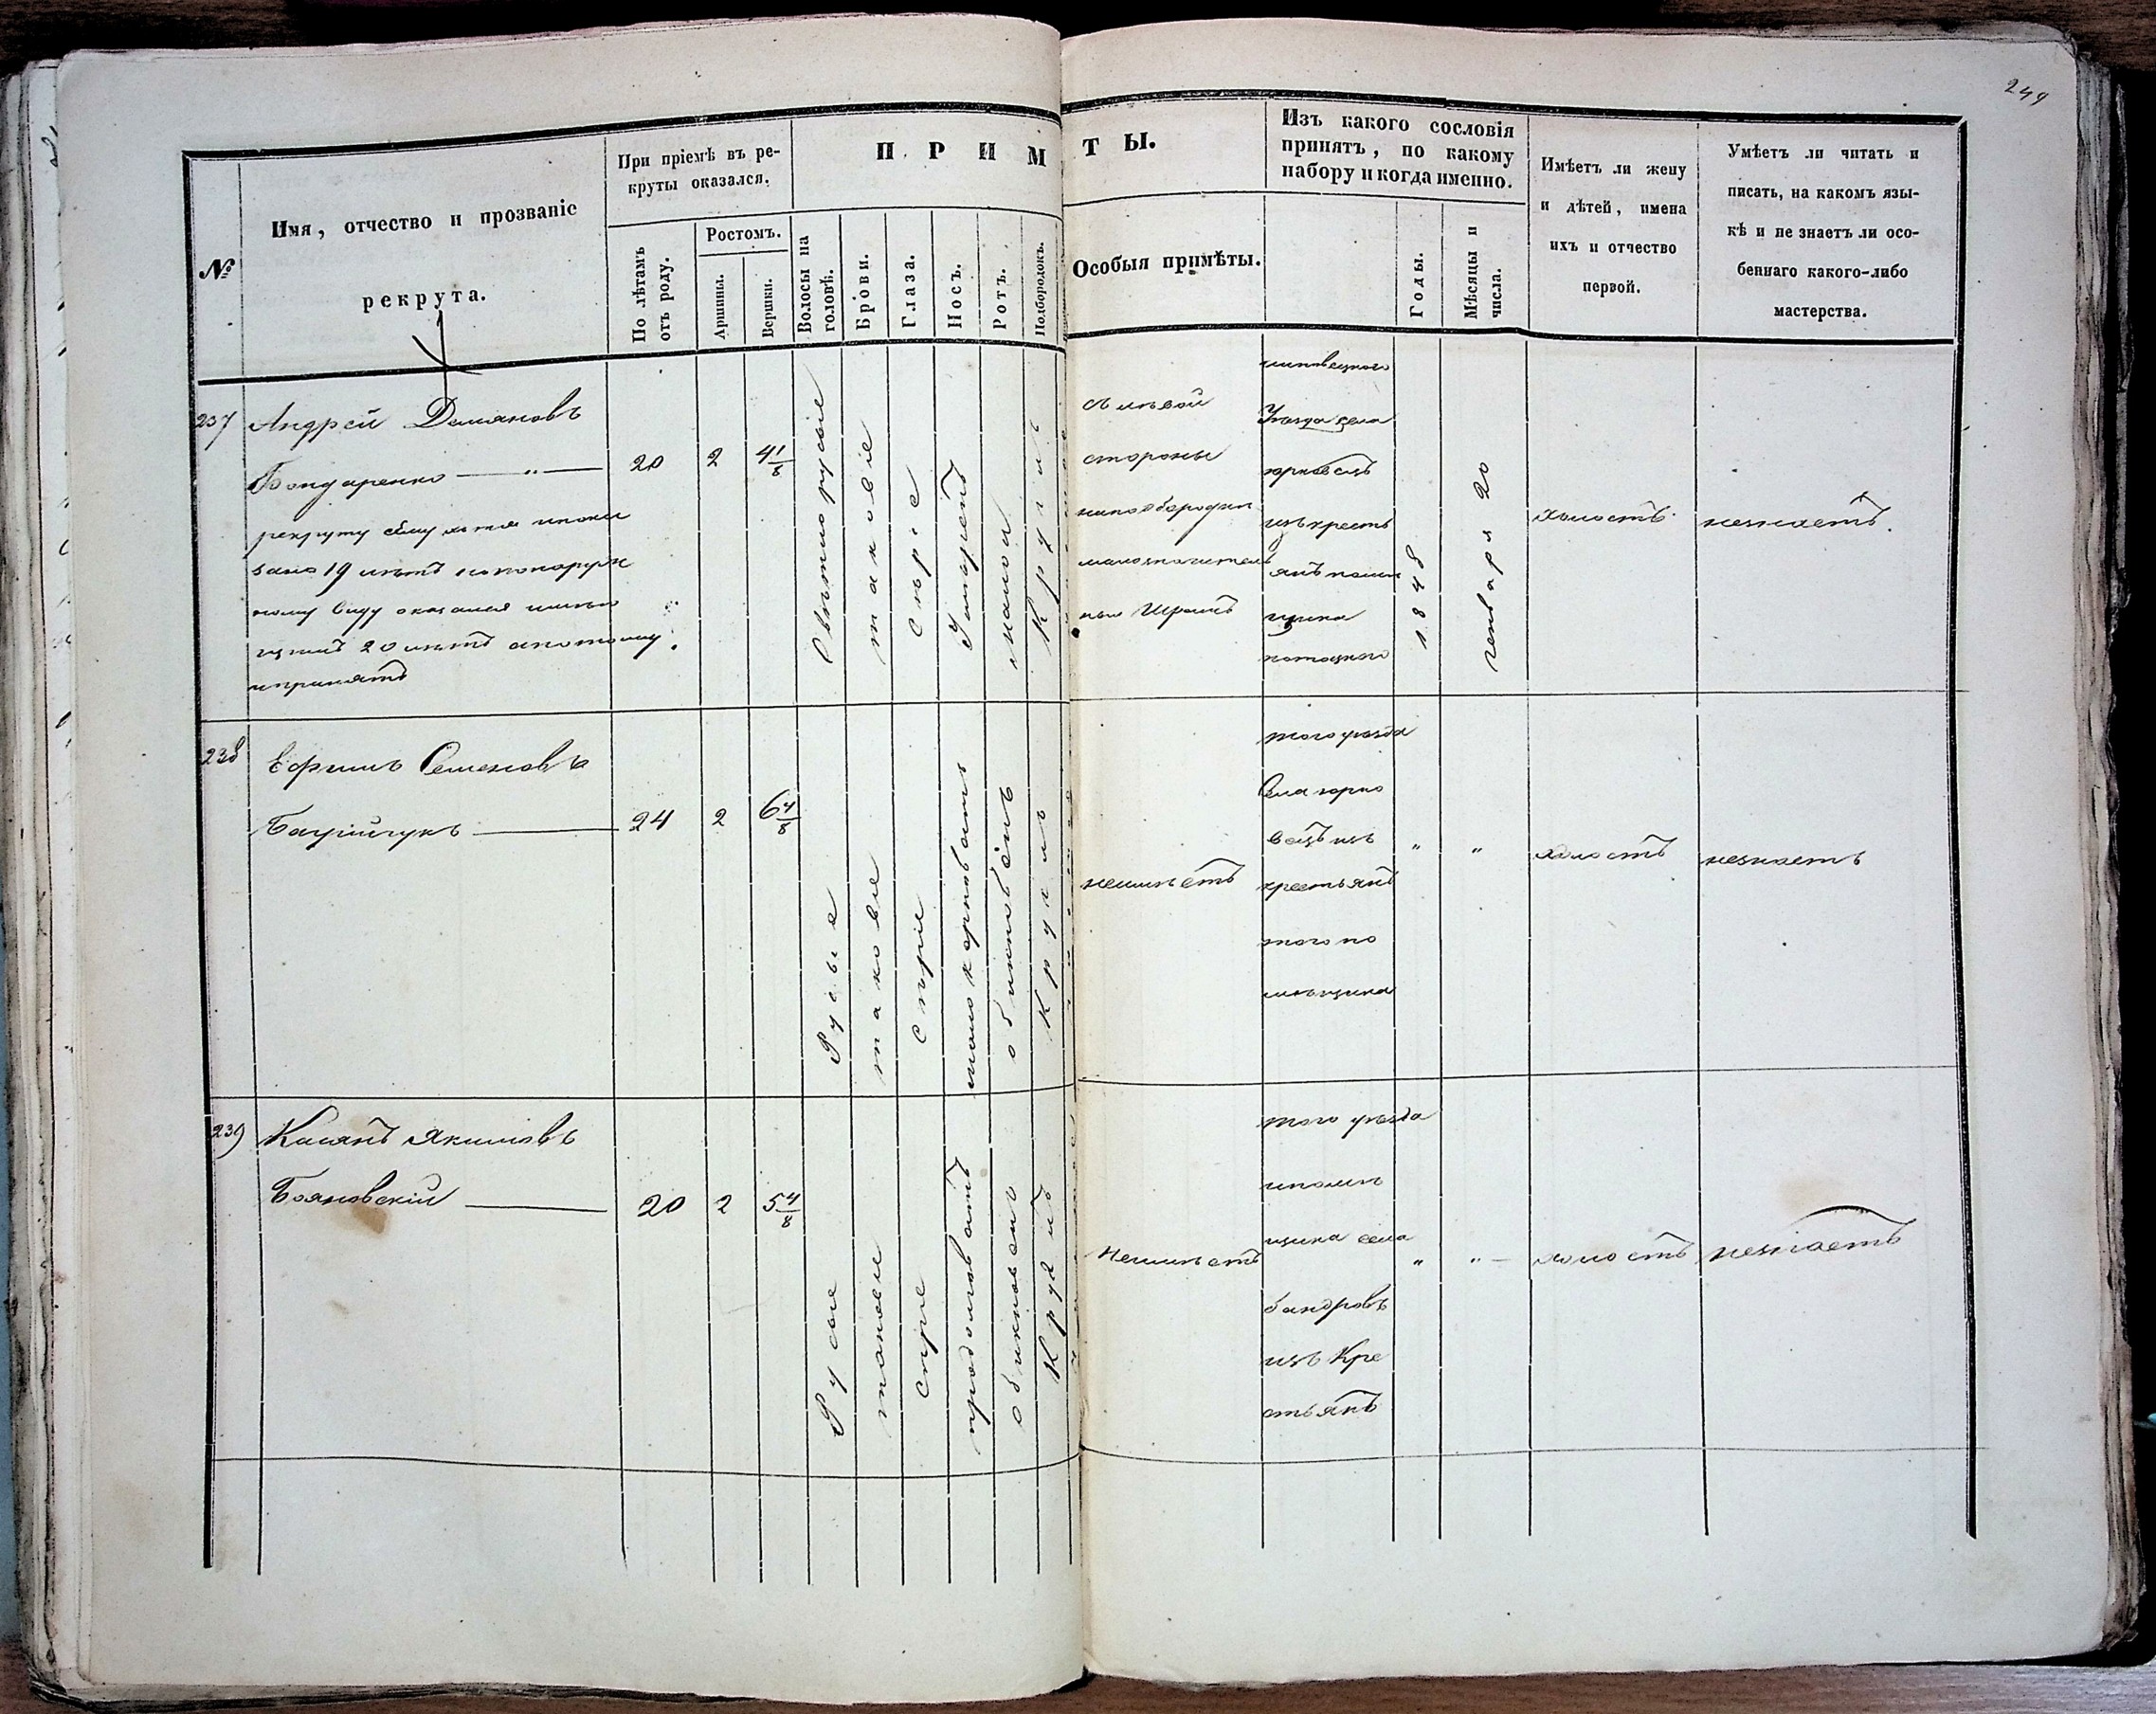 249
№
Имя, отчество и прозваніе
рекрута.
При пріемѣ въ ре-
круты оказался.
По лѣтамъ
отъ роду.
Ростомъ.
Аршины.
Вершки.
П Р И М
Т Ы.
Волосы на
головѣ.
Брови.
Глаза.
Носъ.
Ротъ.
Подбородокъ.
Особыя примѣты.
Изъ какого сословія
принятъ, по какому
набору и когда именно.
Годы.
Мѣсяцы и
числа.
Имѣетъ ли жену
и дѣтей, имена
ихъ и отчество
первой.
Умѣетъ ли читать и
писать, на какомъ язы-
кѣ и не знаетъ ли осо-
беннаго какого-либо
мастерства.
237
Андрей Демяновъ
Бондаренко — " —
рекруту сему хотя пока
зано 19 лѣтъ но по наруж
ному виду оказался имѣю
щимъ 20 лѣтъ а потому
и принятъ
20
2
4 1/8
Свѣтлорусые
таковіе
сѣріе
Умѣренъ
малой
Круглъ
съ лѣвой
стороны
на подбородкѣ
малозначитель
ный Шрамъ
липовецкого
Уѣзда села
юрковецъ
изъ крестъ
янъ помѣ
щика
потоцкого
1848
генваря 20
холостъ
незнаетъ.
238
Ефимъ Семеновъ
24
2
6 4/8
Русые
таковіе
сѣріе
обикновенъ
Круглъ
неимѣетъ
того уѣзда
Села юрко
вецъ изъ
крестьянъ
того по
мѣщика
"
"
холостъ
незнаетъ
239
Касянъ Якимовъ
Бояновскій
20
2
5 4/8
Русые
таковіе
сѣріе
продолговатъ
обикновенъ
Круглъ
Неимѣетъ
того уѣзда
ипомѣ
щика села
бандровъ
изъ Кре
стьянъ
"
" —
холостъ
незнаетъ